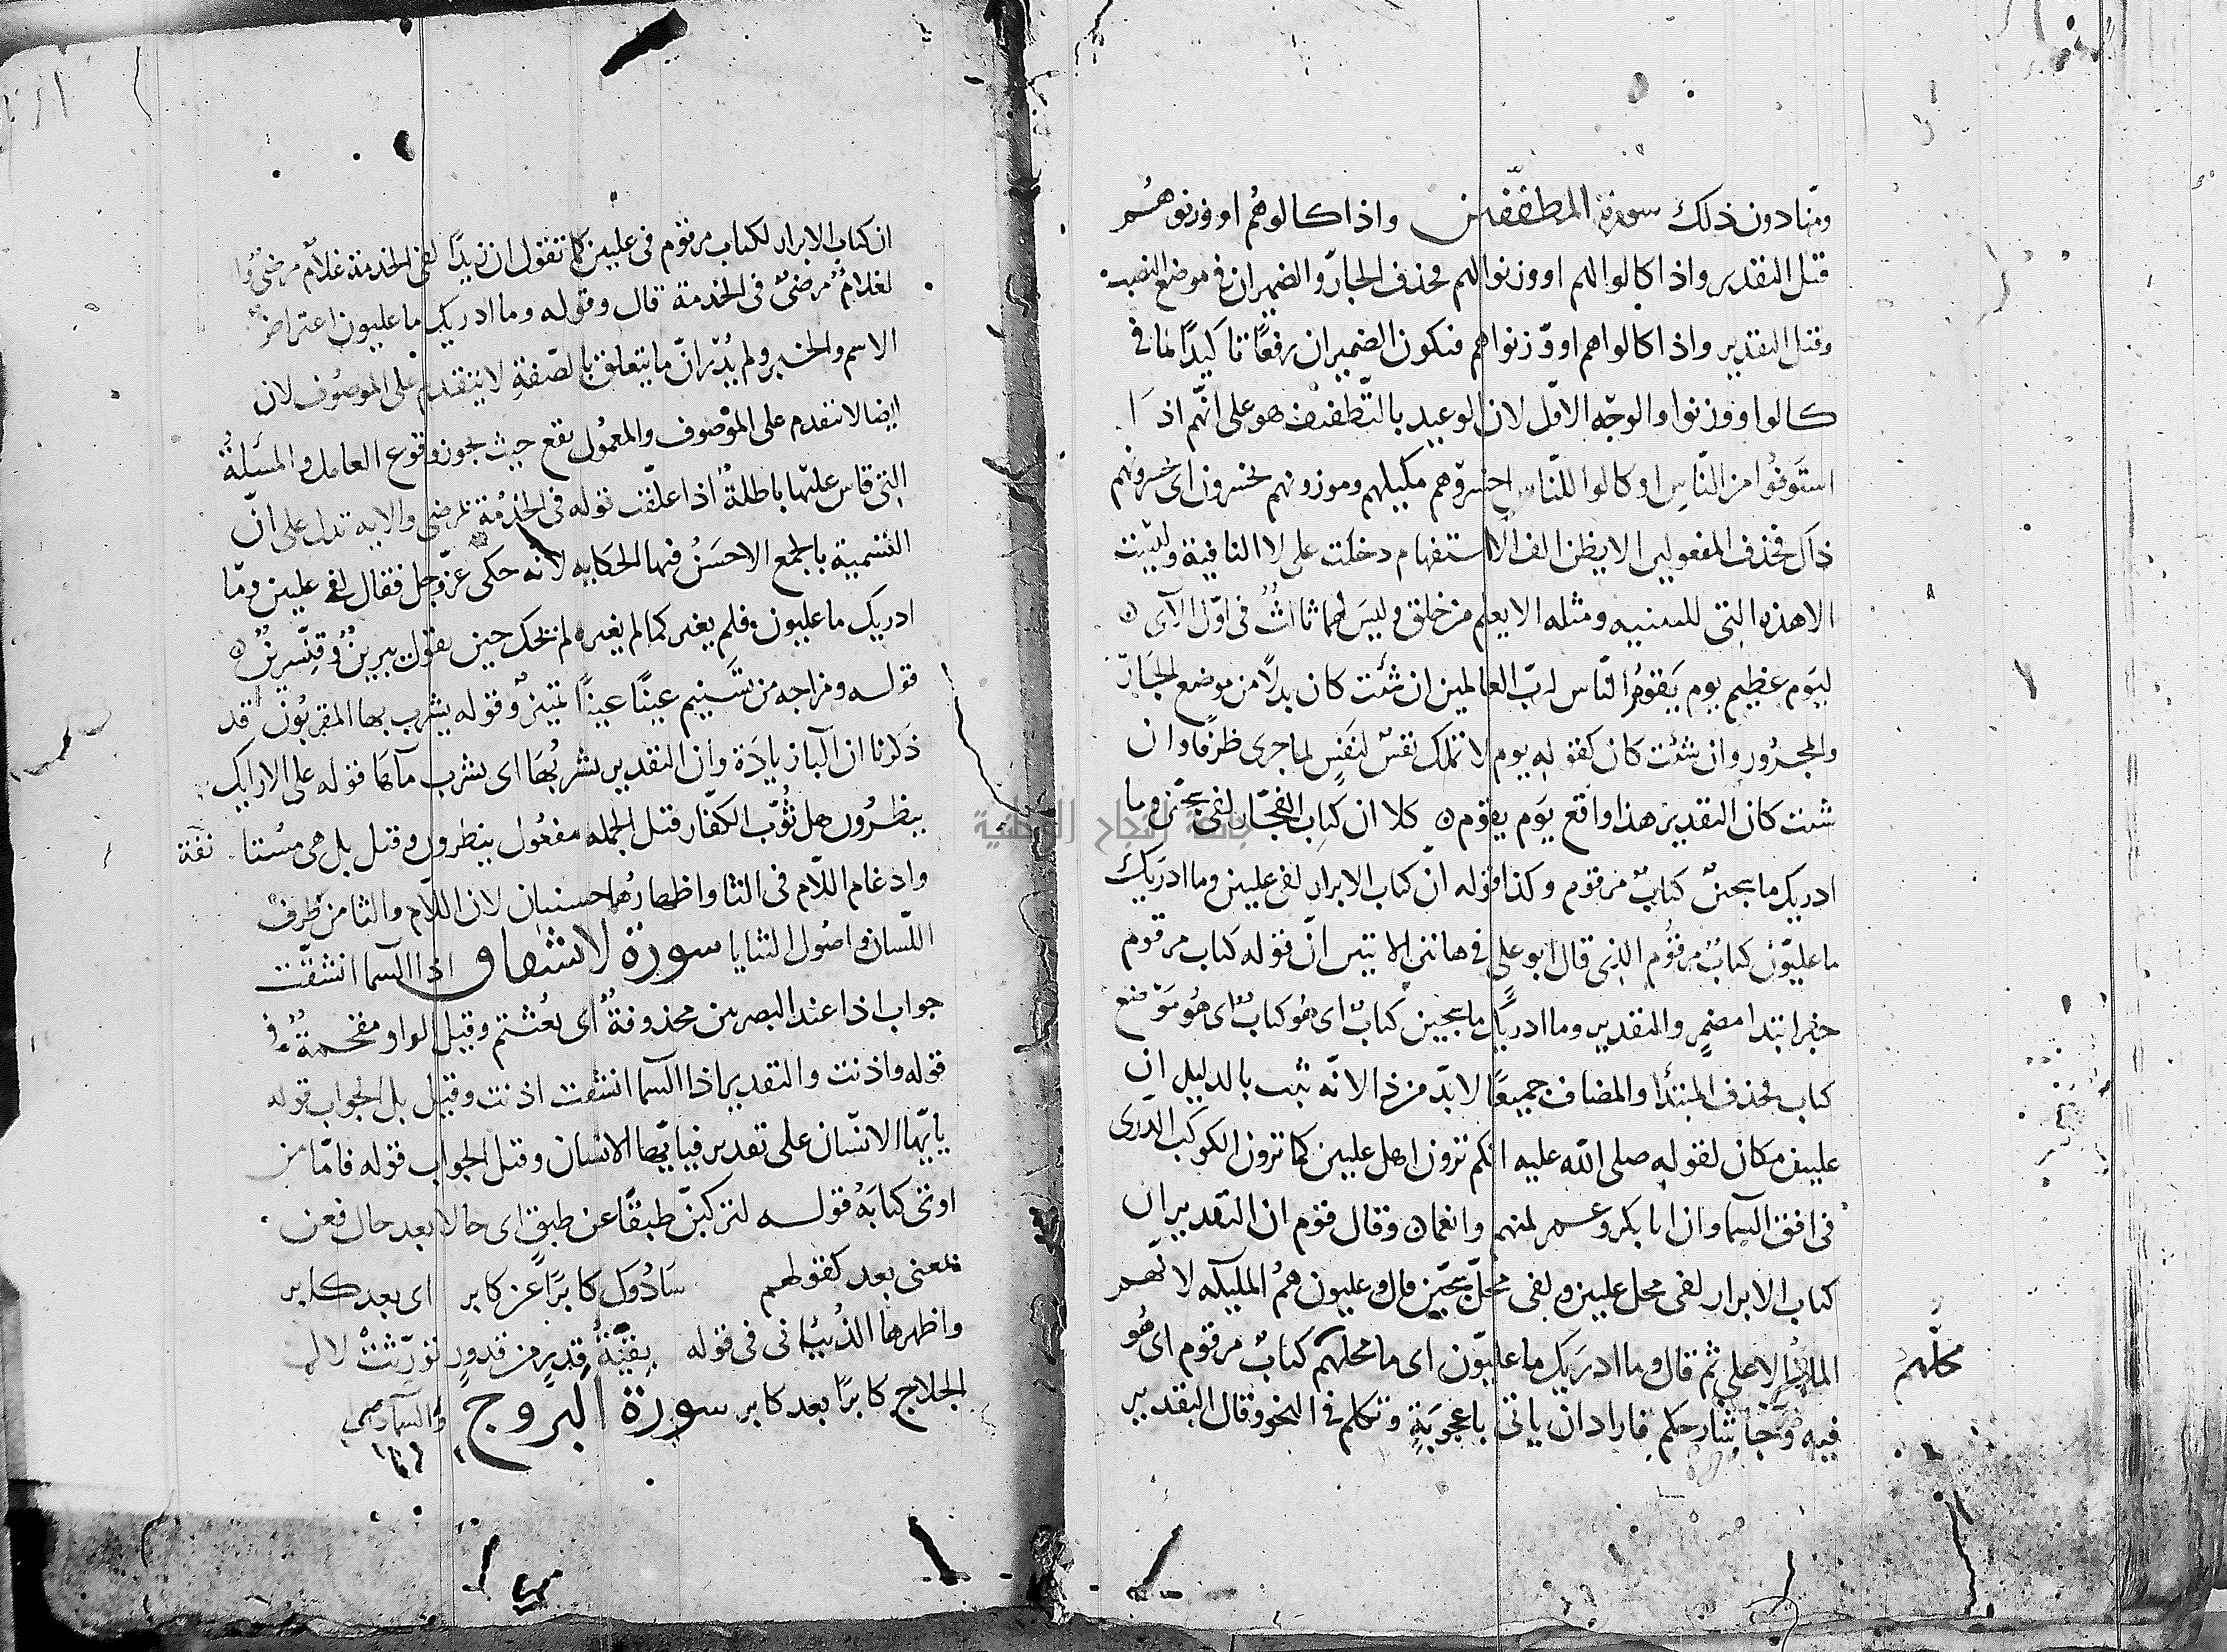 ومنادون ذلك سورة المطففين واذا كالوهُم او وزنوهُم
قيل التقدير واذا كالوا لهم او وزنوا لهم فحذف الجارّ والضميران في موضع النصب
وقيل التقدير واذا كالواهم او وّزنواهم فيكون الضميران رفعًا تاكيدًا لما في
كالوا ووزنوا والوجه الاوّل لان الوعيد بالتّطفيف هو على انّهم اذا
استَوفُوا من النّاسِ او كالوا للنّاس اخسروهم مكيلهم وموزونهم يخسرون اى يخسرونهم
ذاك فحذف المفعولين الا يظن الف الاستفهام دخلت على لا النافية وليست
الا هذه التى للتنبيه ومثله الا يعلم من خلق وليسَ لهما ثالثٌ فى اوّل الآى
ليَوم عظيم يوم يَقومُ النّاس لربّ العالمين ان شئت كان بدلًا من موضع الجَارّ
والمجرُور وان شئت كان كقوله يوم لا تملك نفسٌ لنَفسٍ لما جرى ظرفًا وان
شئت كان التقدير هذا واقع يَوم يقوم كلا ان كتاب الفجّار لفى سجّين وما
ادريك ما سجينٌ كتابٌ مرقوم وكذا قوله انّ كتاب الابرار لفى عليين وما ادرَيك
ما عليّون كتابٌ مرقوم الذى قال ابو على فى هاتين الايتين انّ قوله كتاب مرقوم
خبر ابتدا مضمرٍ والتقدير وما ادريك ما سجين كتابٌ اى هُو كتابٌ اى هُو مَوْضع
كتاب فحذف المبتدأ والمضاف جميعًا لا بدّ من ذا لانّه ثبت بالدليل ان
عليين مكان لقوله صلى الله عليه انكم ترون اهل عليين كما ترون الكوكب الدّرى
فى افق السما وان ابا بكر وعمر لمنهم وانعمان وقال قوم ان التقدير ان
كتاب الابرار لفى محل عليين ولفى محَلّ سجّين قال وعليون همُ المليكه لانّهم
الملأُ الاعلى ثم قال وما ادرَيك ما عليّون اى ما محلهم كتابٌ مرقوم اى هُو
محلّهم
فيه وجا شارحكم فاراد ان ياتى باعجوبَةٍ وتكلم فى النحو وقال التقدير
ان كتاب الابرار لكتاب مرقوم فى عليين كما تقول ان زيدًا لفى الخدمة غلامٌ مرضىٌّ
لغلامٌ مُرضىٌّ فى الخدمة قال وقوله وما ادريك ما عليون اعتراض
الاسم والخبر ولم يُدْر انّ ما يتعلق بالصّفةِ لا يتقدم على الموصُوف لان
ايضا لا تتقدم على الموْصُوف والمعمُول يقع حيث يجوز وقوع العامل والمسَلةُ
التى قاس عليْها باطلةٌ اذا علّقت قوله فى الخدْمة بمرضى والايه تدل على انّ
التسمية بالجمع الاحسَنُ فيها الحكايه لانه حكى عزّ وجل فقال لفى عليين ومَا
ادريك ما عليون فلم يغير كما لم يغيره حين يقول يبرينُ وقِنّسرينُ
قوله ومزاجه من تسَنيم عينًا عينًا تمييز وقوله يشرب بها المقربُون قد
ذَكرنا ان البا زيادَة وان التقدير يشربُهَا اى يشرب مآها قوله على الارايك
ينظرُون هل ثُوّب الكفّار قيل الجمله مفعُول ينظرون وقيل بل هى مسُتا نفة
وادغام اللّام فى الثا واظهارُها حسنان لان اللّام والثا من طرف
اللّسان واصُول الثنايا سورة الانشقاق اذا السما انشقّت
جواب اذا عند البصريين محذوفةٌ اى بُعثتم وقيل الواو مقحمةٌ فى
قوله واذنت والتقدير اذا السما انشقت اذنت وقيل بل الجواب قوله
يايّها الانسان على تقدير فيايّها الانسان وقيل الجواب قوله فامّا من
اوتى كتابَهُ قوله لتركبنّ طبقًا عن طبقٍ اى حالا بعد حال فعن
بمعنى بعد كقولهم سَادُوكَ كابرًا عن كابر اى بعد كابر
واظهرها الذُبيانى فى قوله بقيّةُ قِدرٍ من قدورٍ تورّثتْ لال
الجلاح كابرًا بعد كابر سورة البروج والسما